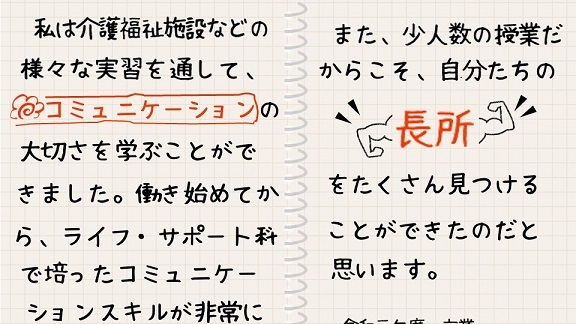 私は介護福祉施設などの
様々な実習を通して、
コミュニケーションの
大切さを学ぶことがで
きました。働き始めてか
ら、ライフ・サポート科
で培ったコミュニケー
ションスキルが非常に
また、少人数の授業だ
からこそ、自分たちの
長所
をたくさん見つける
ことができたのだと
思います。